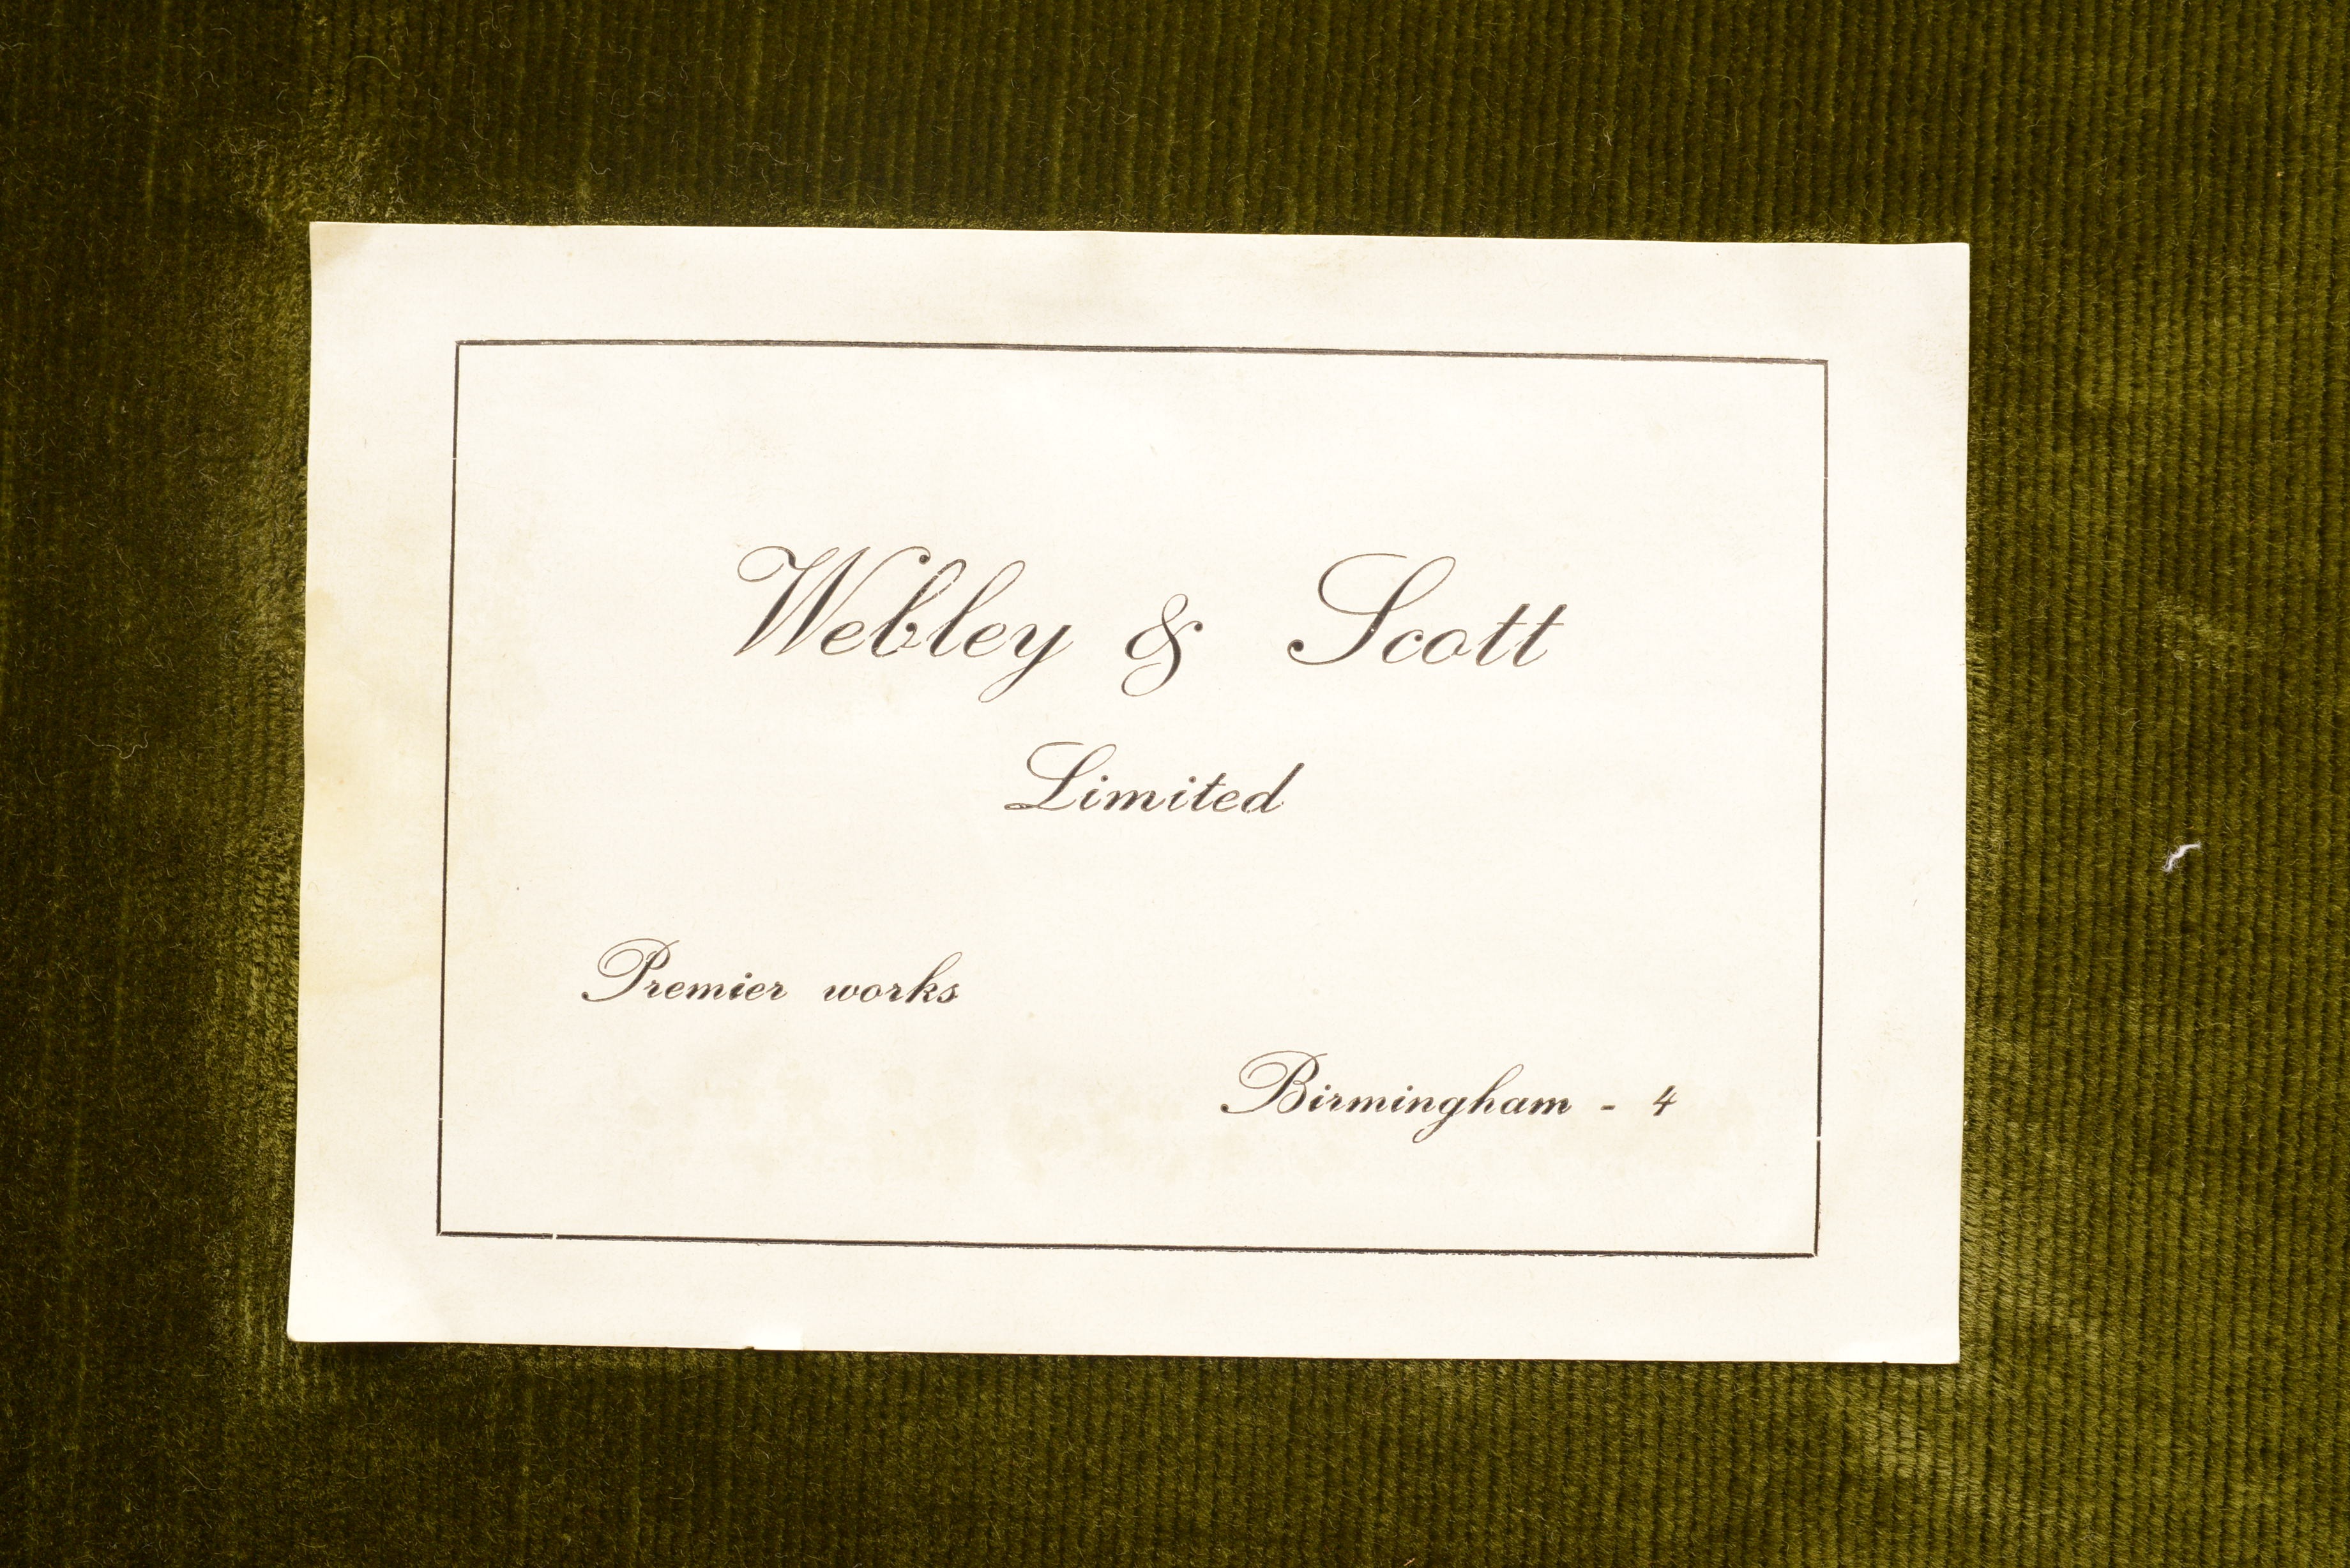 Webley & Scott
Limited
Premier works
Birmingham - 4